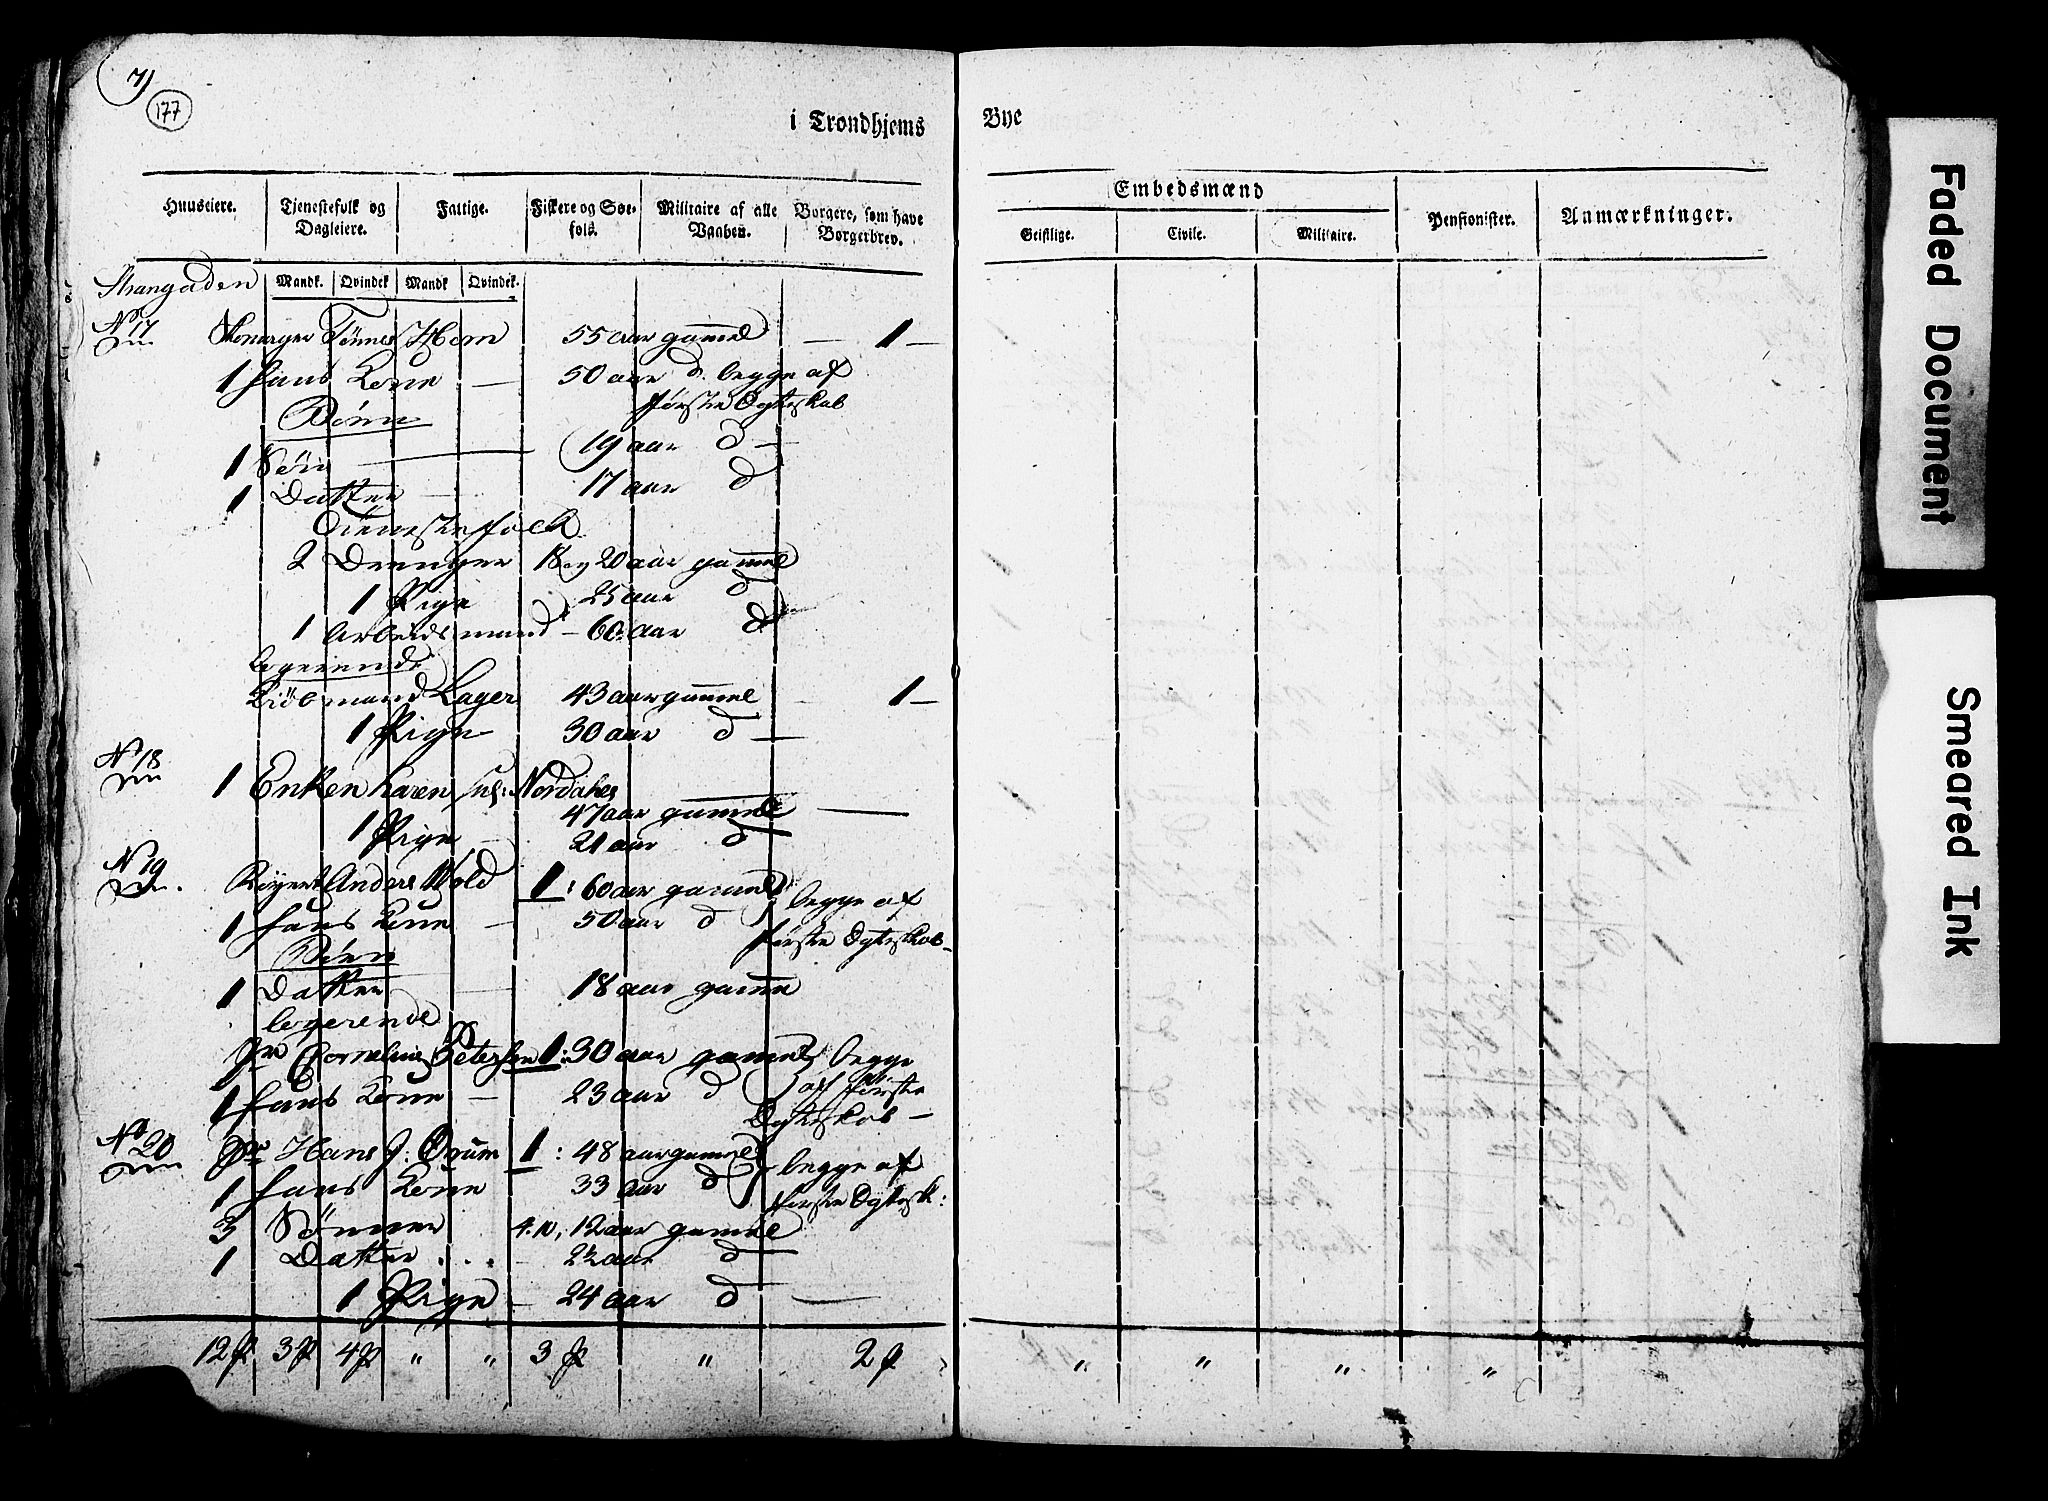 7)
177
i Trondhjems Bye
Huuseiere. Tjenestefolk og Dagleiere. Fattige. Fiskere og Søefolk. Militaire af alle Vaaben. Borgere, som have Borgerbrev.
Embedsmænd
Geistlige. Civile. Militaire. Pensionister. Anmærkninger.
Mandk. Qvindek. Mandk. Qvindek.
Strangaden
No 17 Skomager Tønnes Horn 55 aar gamel — 1 —
1 hans Kone — 50 aar d. begge af
første Egteskab
Børn
1 Søn — 19 aar d —
1 Datter — 17 aar d
Tienestefolck
2 Drenger 18 og 20 aar gamel
1 Pige 25 aar d
1 Arbeidsmand — 60 aar d
Logerende
Kiøbmand Lager 43 aar gamel — 1 —
1 Pige 30 aar d —
No 18
1 Enken Karen Nordahl
47 aar gamel —
1 Pige — 21 aar d
No 19
Anders Wold 1: 60 aar gamel begge af
1 hans Kone — 50 aar d første Egteskab —
Børn
1 Datter — 18 aar gamel
Logerende
Cornelius Petersen 1: 30 aar gamel begge
1 hans Kone — 23 aar d af første
Egteskab —
No 20 Hans J: Ørum 1: 48 aar gamel begge af
1 hans Kone 33 aar d første Egtesk:
3 Sønner 4. 10, 12 aar gamel
1 Datter . . . — 2½ aar d
1 Pige — 24 aar d —
12 p 3 p 4 p " " 3 p " 2 p " " " "
Faded Document
Smeared Ink